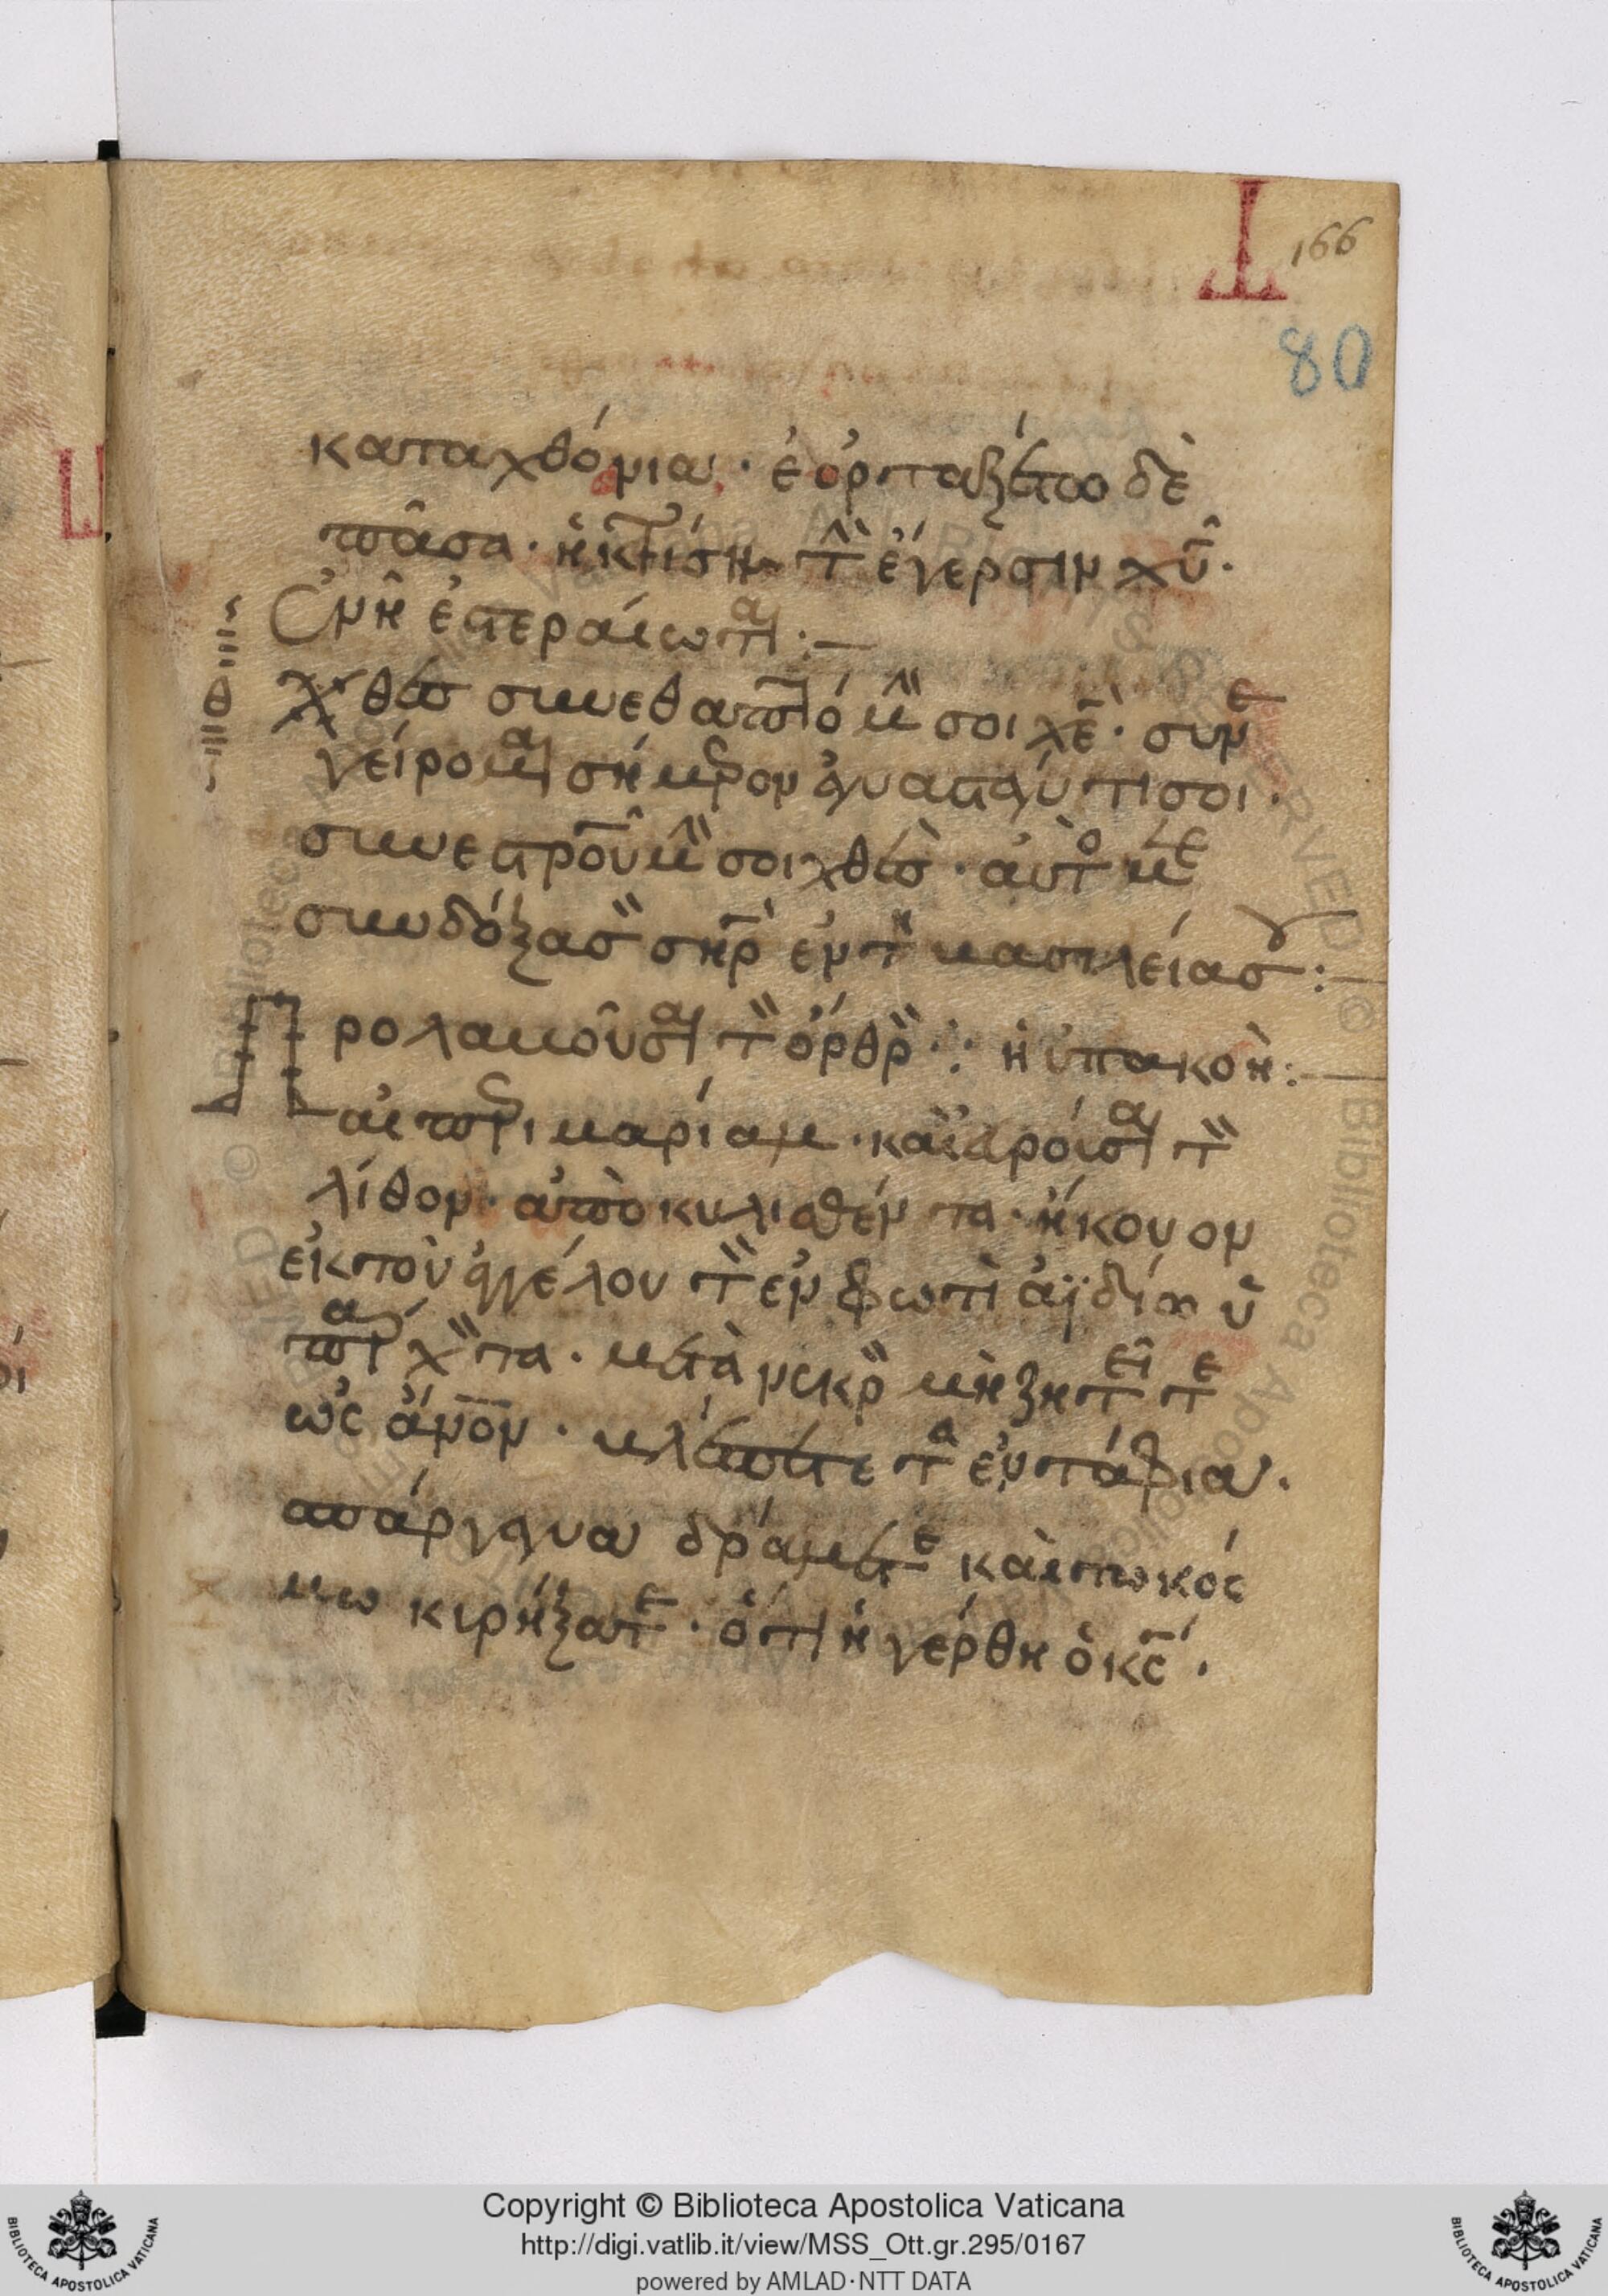 166
80
καταχθόνια· ἑορταζέτω δὲ
πᾶσα· ἡ κτίσης τ̀ ἔγερσιν χῦ·
Ὃν ἢ ἐστεραίωτ(αι) :—
χθὲς συνεθαπτόμ̀ σοι χέ· συν
γείρομαι σήμερον ἀναστάντι σοι·
συνεστρούμ̀ σοι χθὲς· αὐτό με
συνδόξασ̀ σηρ̀ ἐν τ̀ βασιλείας :—
ρολαβοῦσαι τ̀ ὄρθρ̀ ⁘ ἡ ὑπακοὴ :—
αι περὶ μαριάμ· καὶ εὑροῦσαι τ̀
λίθον· ἀποκυλισθέντα· ἤκουον
ἐκ τοὺ ἀγγέλου τ̀ ἐν φωτὶ ἀϊδίω ὑ
πάρχ̀τα· μετὰ νεκρ̀ μὴ ζητεῖτε
ὡς ἄνον· βλέπετε τὰ ἐντάφια·
σπάργανα δράμετε καὶ τω κός
μω κιρήξατε· ὅτι ἠγέρθη ὁ κς·
Copyright © Biblioteca Apostolica Vaticana
http://digi.vatlib.it/view/MSS_Ott.gr.295/0167
powered by AMLAD·NTT DATA
BIBLIOTECA APOSTOLICA VATICANA
BIBLIOTECA APOSTOLICA VATICANA